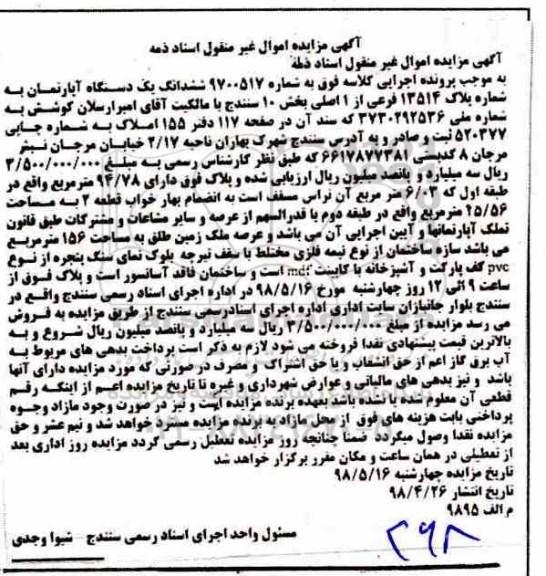 آگهی مزایده اموال غیر منقول اسناد ذمه
آگهی مزایده اموال غیر منقول اسناد ذمه
به موجب پرونده اجرایی کلاسه فوق به شماره ۹۷۰۰۵۱۷ ششدانگ یک دستگاه آپارتمان به
شماره پلاک ۱۳۵۱۴ فرعی از ۱ اصلی بخش ۱۰ سنندج با مالکیت آقای امیرارسلان کوشش به
شماره ملی ۳۷۳۰۲۹۲۵۳۶ که سند آن در صفحه ۱۱۷ دفتر ۱۵۵ املاک به شماره چاپی
۵۲۰۳۷۷ ثبت و صادر و به آدرس سنندج شهرک بهاران ناحیه ۲/۱۷ خیابان مرجان نبش
مرجان ۸ کدپستی ۶۶۱۷۸۷۷۳۸۱ که طبق نظر کارشناس رسمی به مبلغ ۳/۵۰۰/۰۰۰/۰۰۰
ریال سه میلیارد و پانصد میلیون ریال ارزیابی شده و پلاک فوق دارای ۹۴/۷۸ مترمربع واقع در
طبقه اول که ۶/۰۳ متر مربع آن تراس مسقف است به انضمام بهار خواب قطعه ۲ به مساحت
۲۵/۵۶ مترمربع واقع در طبقه دوم با قدرالسهم از عرصه و سایر مشاعات و مشترکات طبق قانون
تملک آپارتمانها و آیین اجرایی آن می باشد و عرصه ملک زمین طلق به مساحت ۱۵۶ مترمربع
می باشد سازه ساختمان از نوع نیمه فلزی مختلط با سقف تیرچه بلوک نمای سنگ پنجره از نوع
pvc کف پارکت و آشپزخانه با کابینت mdf است و ساختمان فاقد آسانسور است و پلاک فوق از
ساعت ۹ الی ۱۲ روز چهارشنبه مورخ ۹۸/۵/۱۶ در اداره اجرای اسناد رسمی سنندج واقع در
سنندج بلوار جانبازان سایت اداری اداره اجرای اسنادرسمی سنندج از طریق مزایده به فروش
می رسد مزایده از مبلغ ۳/۵۰۰/۰۰۰/۰۰۰ ریال سه میلیارد و پانصد میلیون ریال شروع و به
بالاترین قیمت پیشنهادی نقدا فروخته می شود لازم به ذکر است پرداخت بدهی های مربوط به
آب برق گاز اعم از حق انشعاب و یا حق اشتراک و مصرف در صورتی که مورد مزایده دارای آنها
باشد و نیز بدهی های مالیاتی و عوارض شهرداری و غیره تا تاریخ مزایده اعم از اینکه رقم
قطعی آن معلوم شده یا نشده باشد بعهده برنده مزایده است و نیز در صورت وجود مازاد وجوه
پرداختی بابت هزینه های فوق از محل مازاد به برنده مزایده مسترد خواهد شد و نیم عشر و حق
مزایده نقدا وصول میگردد ضمنا چنانچه روز مزایده تعطیل رسمی گردد مزایده روز اداری بعد
از تعطیلی در همان ساعت و مکان مقرر برگزار خواهد شد
تاریخ مزایده چهارشنبه ۹۸/۵/۱۶
تاریخ انتشار ۹۸/۴/۲۶
م الف ۹۸۹۵
مسئول واحد اجرای اسناد رسمی سنندج شیوا وجدی
۲۹۸